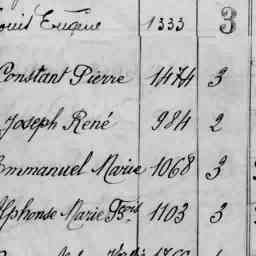 Louis Eugène 1333 3
Constant Pierre 1474 3
Joseph René 984 2
Emmanuel Marie 1068 3
Alphonse Marie Fçois 1103 3